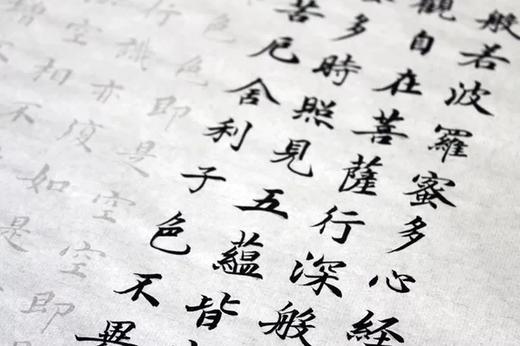 般若波羅蜜多心経
觀自在菩薩行深般
多時照見五蘊皆
苦厄舍利子色不異
色即是空空即
行識亦復如是
空相不